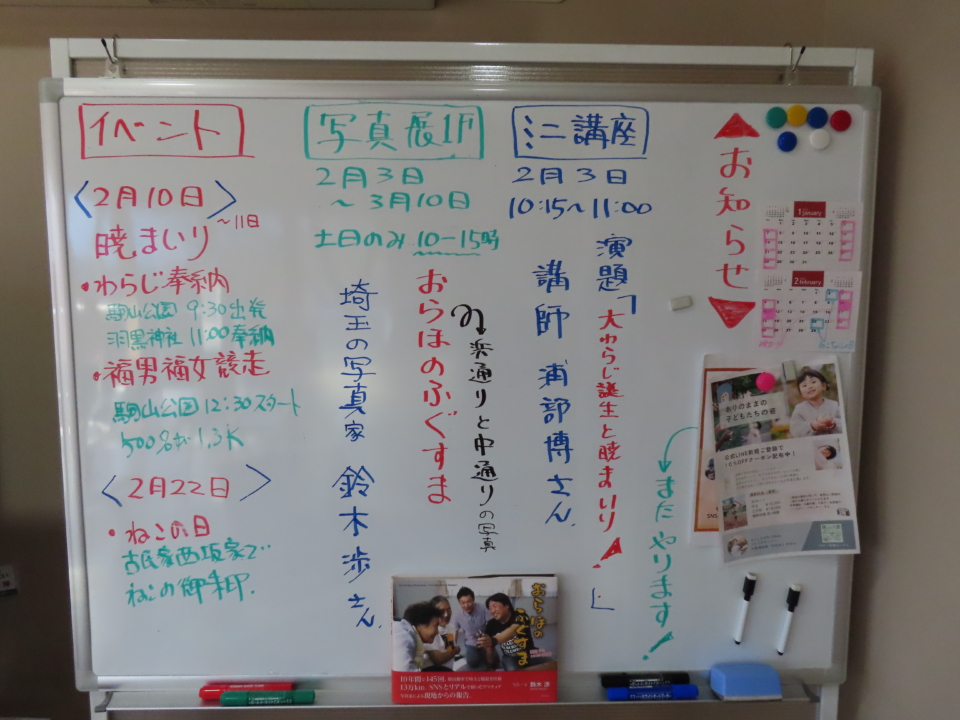 イベント
〈2月10日〉
～11日
暁まいり
・わらじ奉納
駒山公園 9:30出発
羽黒神社 11:00奉納
・福男福女競走
駒山公園 12:30スタート
500名が 1.3K
〈2月22日〉
・ねこの日
古民家西坂家で
ねこの御朱印.
写真展1F
2月3日
～3月10日
土日のみ 10-15時
おらほのふぐすま
浜通りと中通りの写真
埼玉の写真家 鈴木歩さん.
ミニ講座
2月3日
10:15～11:00
演題「大わらじ誕生と暁まいり」
講師 浦部博さん.
お知らせ
またやります!
1 January
2 February
ありのままの
子どもたちの姿
公式LINE新規ご登録で
SNS
おらほの
ふぐすま
10年間に145回、
13万km、SNSとリアルで
現地からの報告